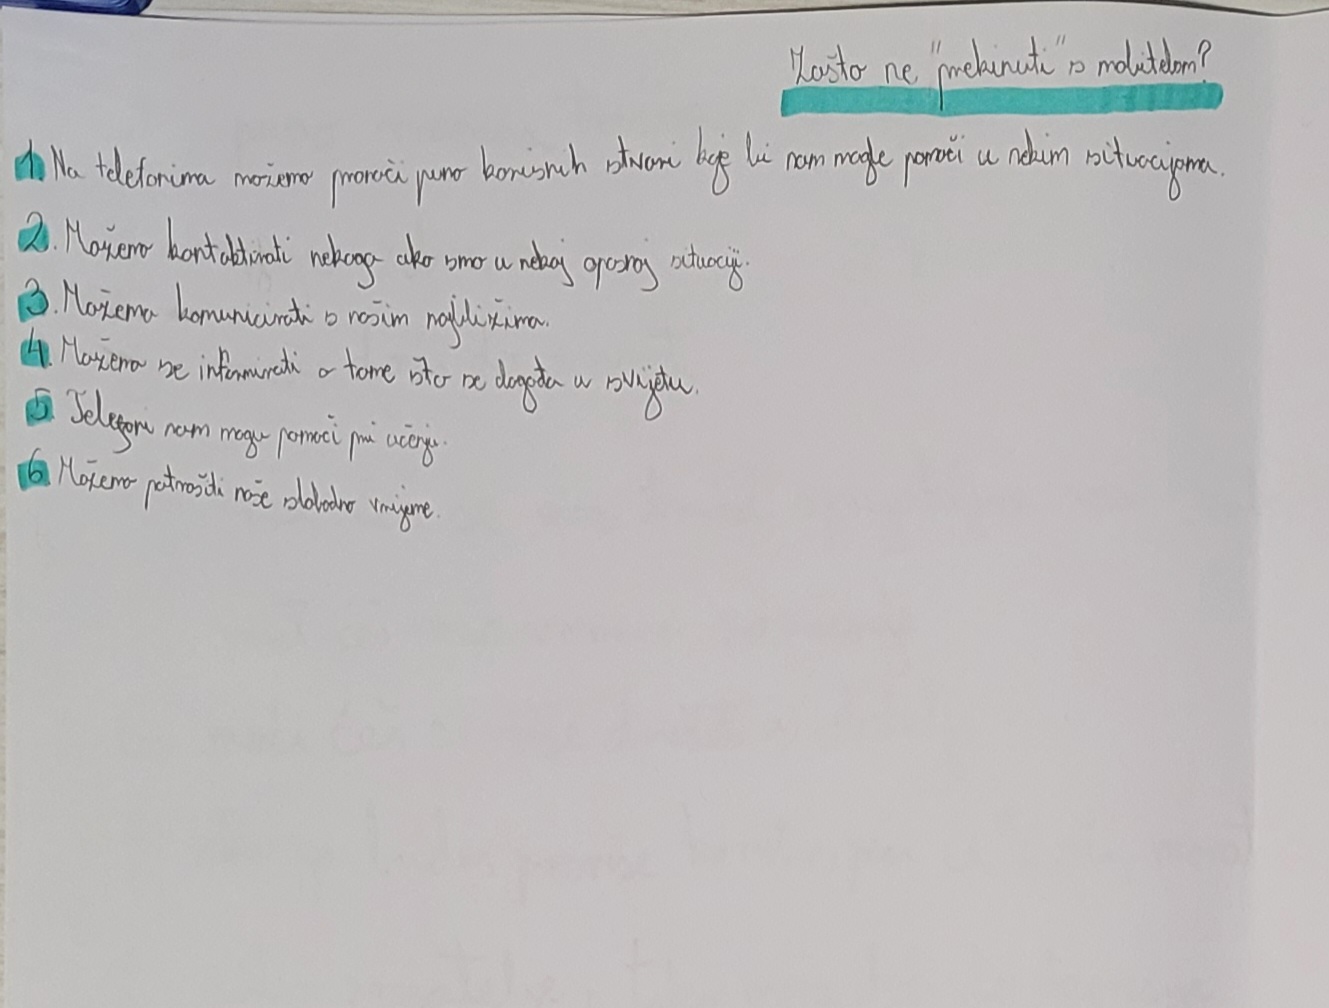 Zašto ne "prekinuti" s mobitelom?
1. Na telefonima možemo pronaći puno korisnih stvari koje bi nam mogle pomoći u nekim situacijama.
2. Možemo kontaktirati nekoga ako smo u nekoj opasnoj situaciji.
3. Možemo komunicirati s našim najbližima.
4. Možemo se informirati o tome što se događa u svijetu.
5. Telefoni nam mogu pomoći pri učenju.
6. Možemo potrošiti naše slobodno vrijeme.